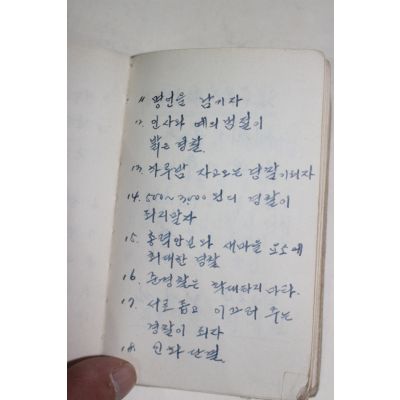 11. 명언을 남기자
12. 인사와 예의 범절이
밝은 경찰.
13. 하루밤 사고오는 경찰이되자
14. 500~3000 원디 경찰이
되지말자
15. 총력안보와 새마을 운동에
최대한 경찰
16. 준경찰은 확대하지 마라.
17. 서로 돕고 이끄러 주는
경찰이 되자
18. 인화 단결.